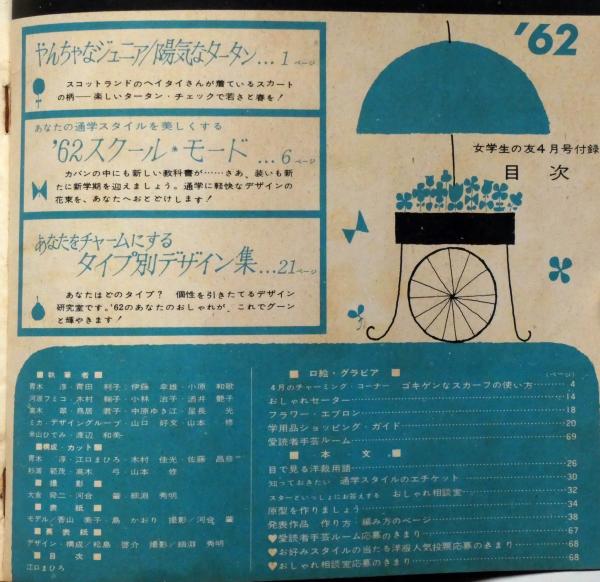 やんちゃなジュニア/陽気なタータン…1ページ
スコットランドのヘイタイさんが着ているスカート
の柄——楽しいタータン・チェックで若さと春を！
あなたの通学スタイルを美しくする
'62スクール・モード…6ページ
カバンの中にも新しい教科書が……さあ、装いも新
たに新学期を迎えましょう。通学に軽快なデザインの
花束を、あなたへおとどけします！
あなたをチャームにする
タイプ別デザイン集…21ページ
あなたはどのタイプ？ 個性を引きたてるデザイン
研究室です。'62のあなたのおしゃれが、これでグーン
と輝やきます！
'62
女学生の友4月号付録
目次
■執筆者■
青木 淳・青田 利子・伊藤 幸雄・小原 和歌
河原フミコ・木村 鞠子・小林 治子・酒井 艶子
高木 翠・鳥居 君子・中原ゆき江・屋長 光
ミカ・デザイングループ・山口 好文・山本 修
米山ひてみ・渡辺 和美
■構成・カット■
青木 淳・江口まひろ・木村 佳光・佐藤 昌彦
杉浦 範茂・高木 弓・山本 修
■撮影■
大倉 舜二・河合 肇・細淵 秀明
■表紙■
モデル/香山 美子・島 かおり 撮影/河合 肇
■裏表紙■
デザイン・構成/松島 啓介 撮影/細淵 秀明
■目次■
江口まひろ
■口絵・グラビア■
(ページ)
4月のチャーミング・コーナー ゴキゲンなスカーフの使い方………4
おしゃれセーター………14
フラワー・エプロン………18
学用品ショッピング・ガイド………20
愛読者手芸ルーム………69
■本文■
目で見る洋裁用語………26
知っておきたい 通学スタイルのエチケット………30
スターといっしょにお答えする おしゃれ相談室………32
原型を作りましょう………34
発表作品 作り方・編み方のページ………38
♥愛読者手芸ルーム応募のきまり………67
♥お好みスタイルの当たる洋服人気投票応募のきまり………68
♥おしゃれ相談室応募のきまり………68